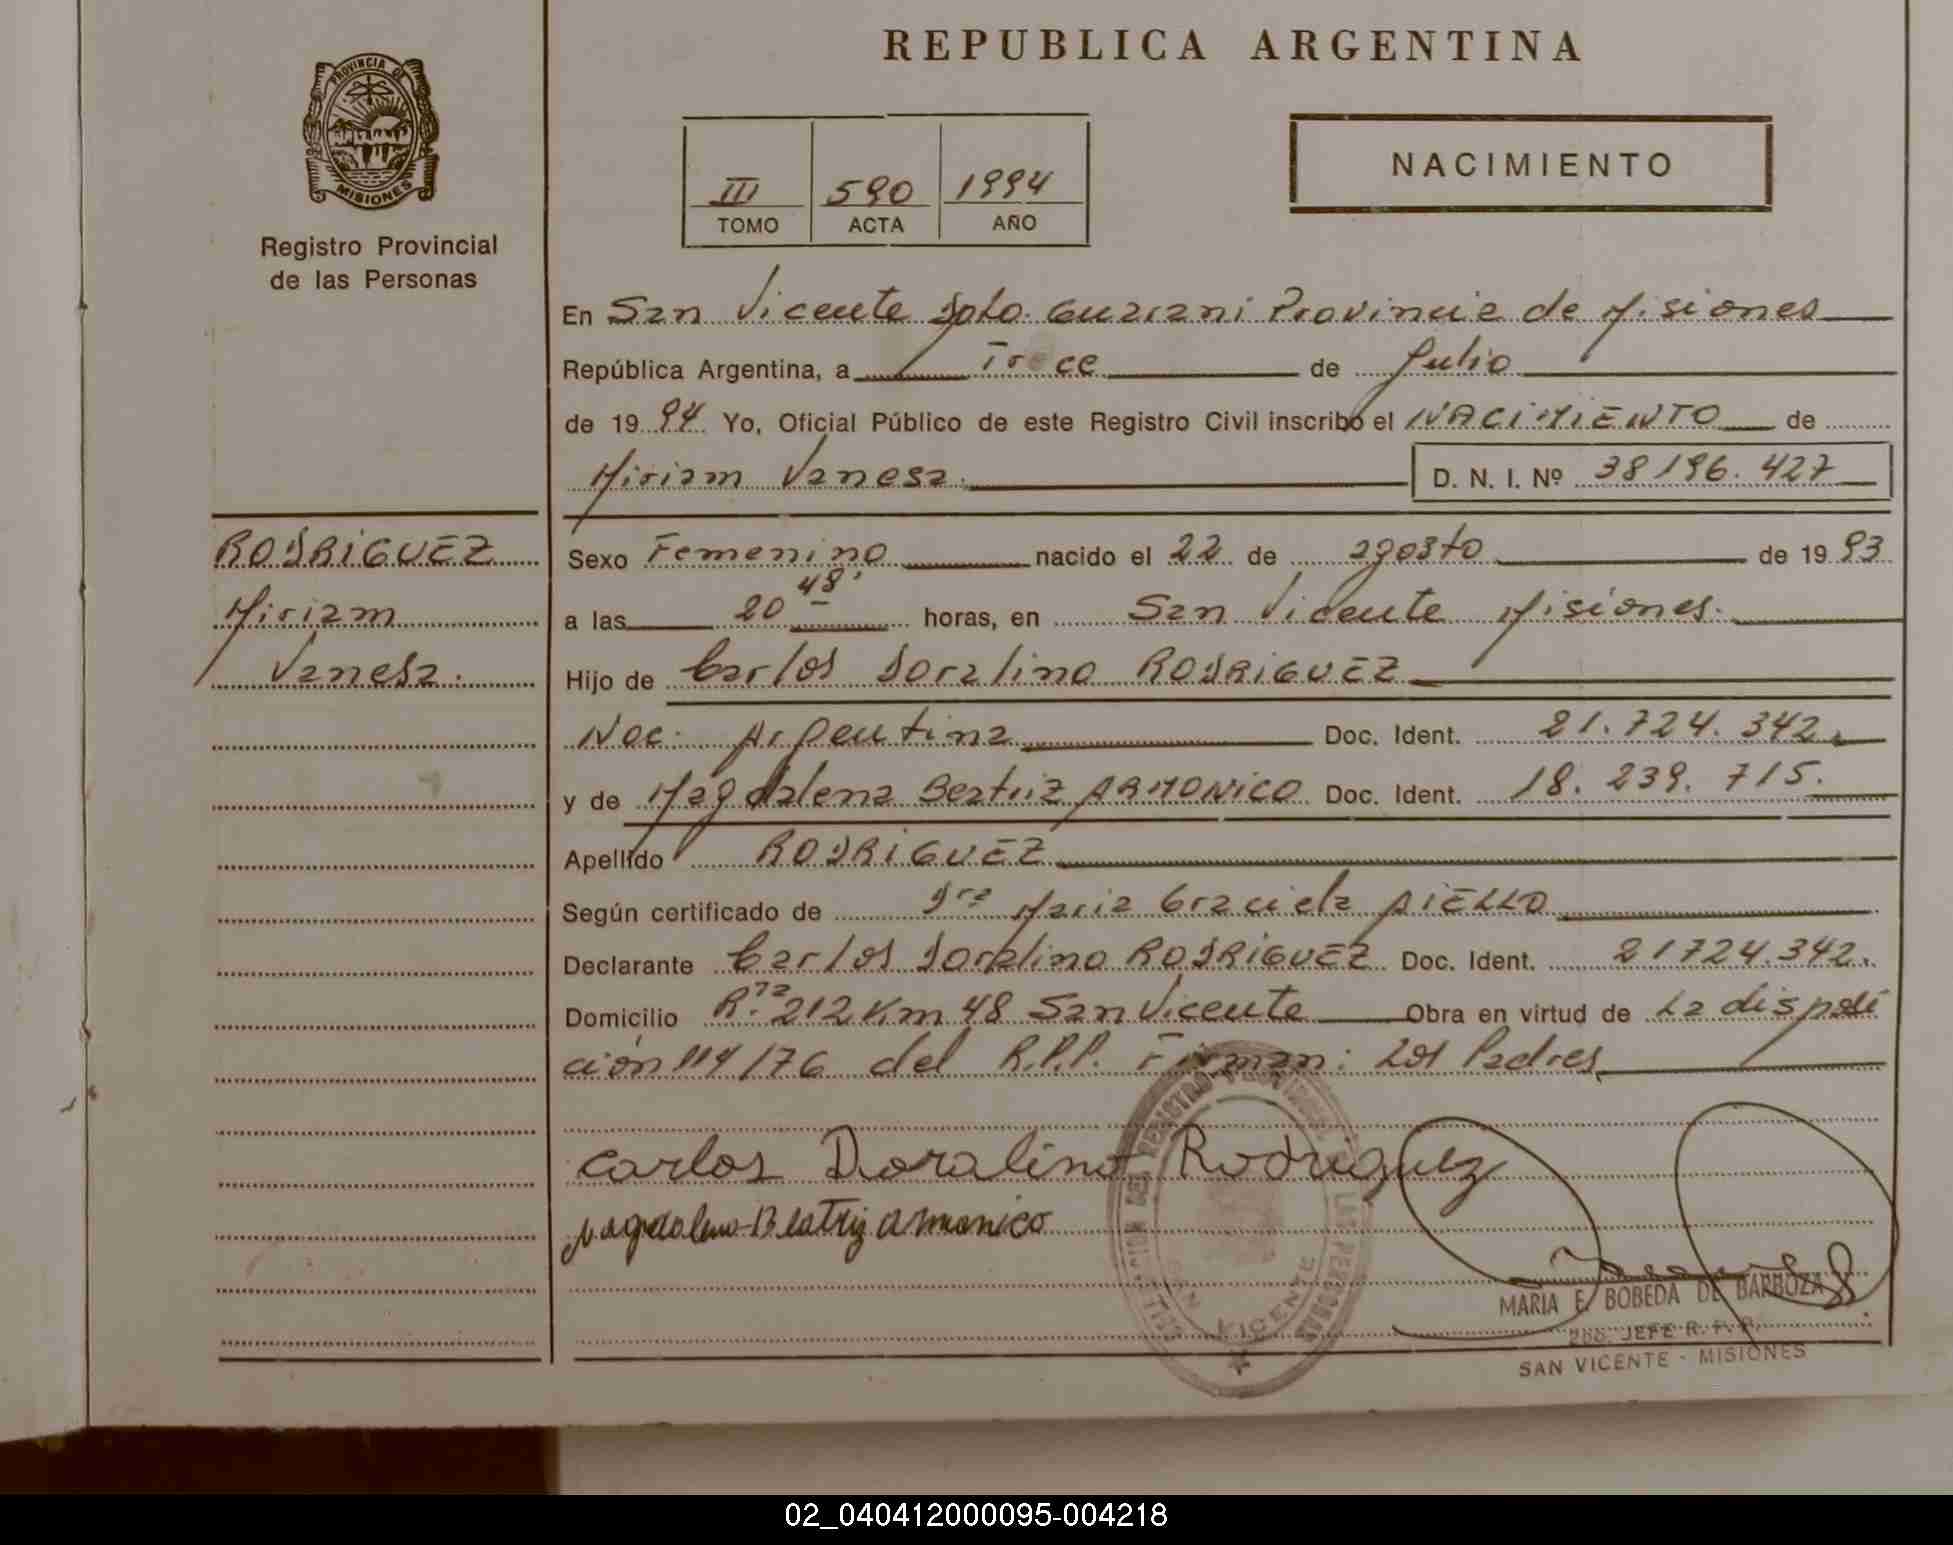 REPUBLICA ARGENTINA
PROVINCIA DE
MISIONES
Registro Provincial
de las Personas
III 590 1994
TOMO ACTA AÑO
NACIMIENTO
En San Vicente Dpto. Guarani Provincia de Misiones
República Argentina, a Trece de Julio
de 1994 Yo, Oficial Público de este Registro Civil inscribo el NACIMIENTO de
Miriam Vanesa. D. N. I. Nº 38196.427
RODRIGUEZ
Miriam
Vanesa.
Sexo Femenino nacido el 22 de agosto de 1993
a las 20 48' horas, en San Vicente Misiones.
Hijo de Carlos Doralino RODRIGUEZ
Nac. Argentina Doc. Ident. 21.724.342.
y de Magdalena Beatriz ARMONICO Doc. Ident. 18.239.715.
Apellido RODRIGUEZ
Según certificado de Dra Maria Graciela AIELLO
Declarante Carlos Doralino RODRIGUEZ Doc. Ident. 21724.342.
Domicilio R. 212 Km 48 San Vicente Obra en virtud de La disposi
ción 114/76 del R.P.P. Firman: Los Padres
Carlos Doralino Rodriguez
Magdalena Beatriz armonico
SAN VICENTE
MARIA E. BOBEDA DE BARBOZA
JEFE R. P. P.
SAN VICENTE - MISIONES
02_040412000095-004218